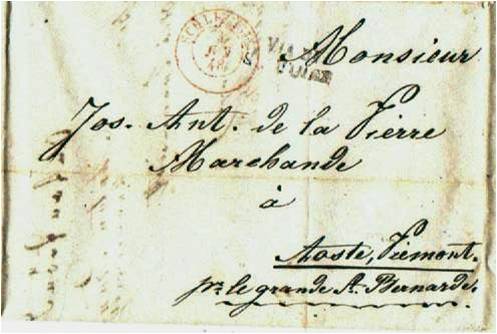 VIA DI
Monsieur
Jos. Ant. de la Pierre
Marchande
à
Aoste, Piemont.
pr. le grande St. Bernarde.